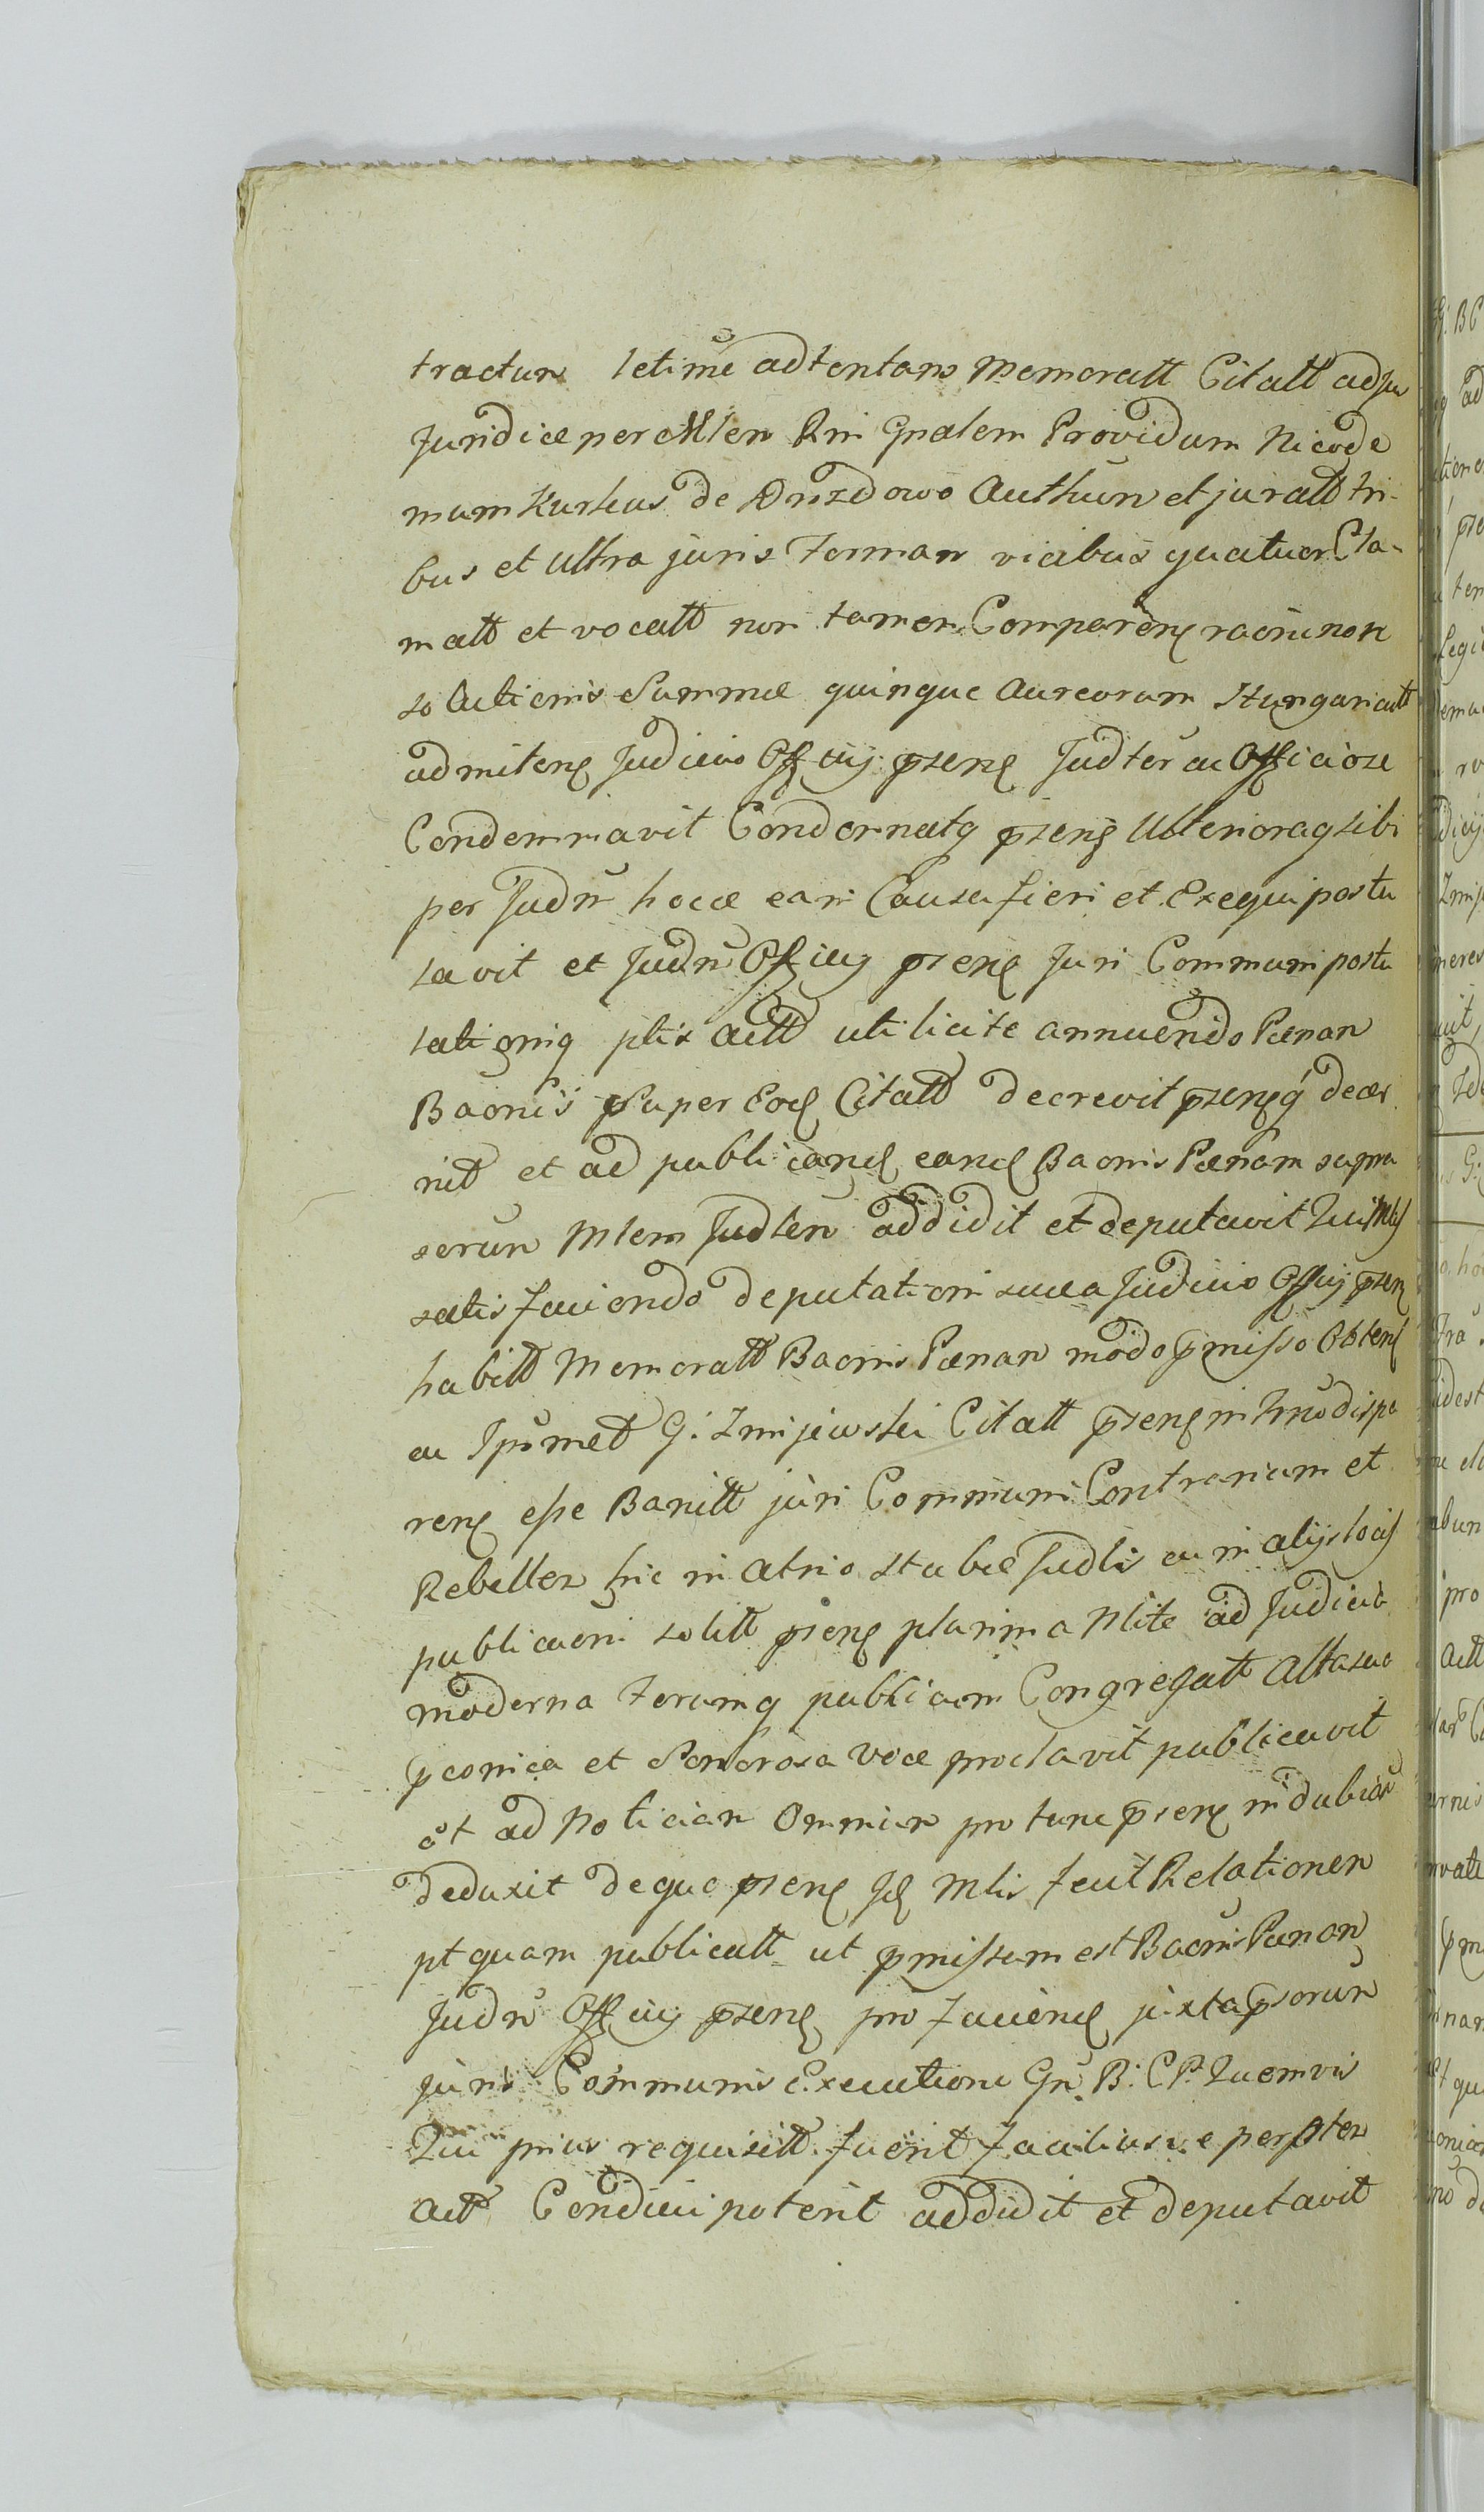 tractum letimẽ adtentans Memoratt Citatt adju
Juridice per Mlem Rni Gnalem Providum Nicode
mum Kurkus de Drozdowo Authũn et juratt tri-
bus et ultra juris Forman vicibus quatuor Cla-
matt et vocatt non tamen Comparen raõne non
solutionis Summæ quinque Aureorum Hungaricatt
admiten Judicio Officij psens Judter ac Officiose
Condemnavit Condemnatq psens Ulterioraq sibi
per Judm hocce eam Causa fieri et Exequi postu
lavit et Judm Officij psens Juri Communi postu
lationiq ptis Actt uti licite annuendo Pænan
Baonis Super Eod Citatt decrevit psensq decer
nit et ad publicand eand Baonis Pænam supra
serun Mlem Judlen addidit et deputavit Qui Mlis
satisfaciendo deputationi suæ a Judicio Officij psens
habitt Memoratt Baonis Pænan modo pmisso Obtens
eu Ipsumet G. Zmijewski Citatt psens in Tnno dispa
rens esse Banitt juri Communi Contrarium et
Rebellen hic in atrio stubæ Judlis eu in alijs locis
publicaõni solitt psens plurima Mlite ad Judicia
moderna Forumq publicum Congregatt Alta sua
pconica et Sonorosa voce proclavit publicavit
et ad Noticiam Omnium pro tunc psens indubiam
deduxit de quo psens Jd Mlis fecit Relationen
pt quam publicatt ut pmissum est Baonis Pænan
Judm Officij psens pro faciend juxta psorum
juris Communis Executione Gn. B. C P. Quemvis
Qui prius requisitt fuerit faciliusve per pten
Actt Conduci poterit addidit et deputavit